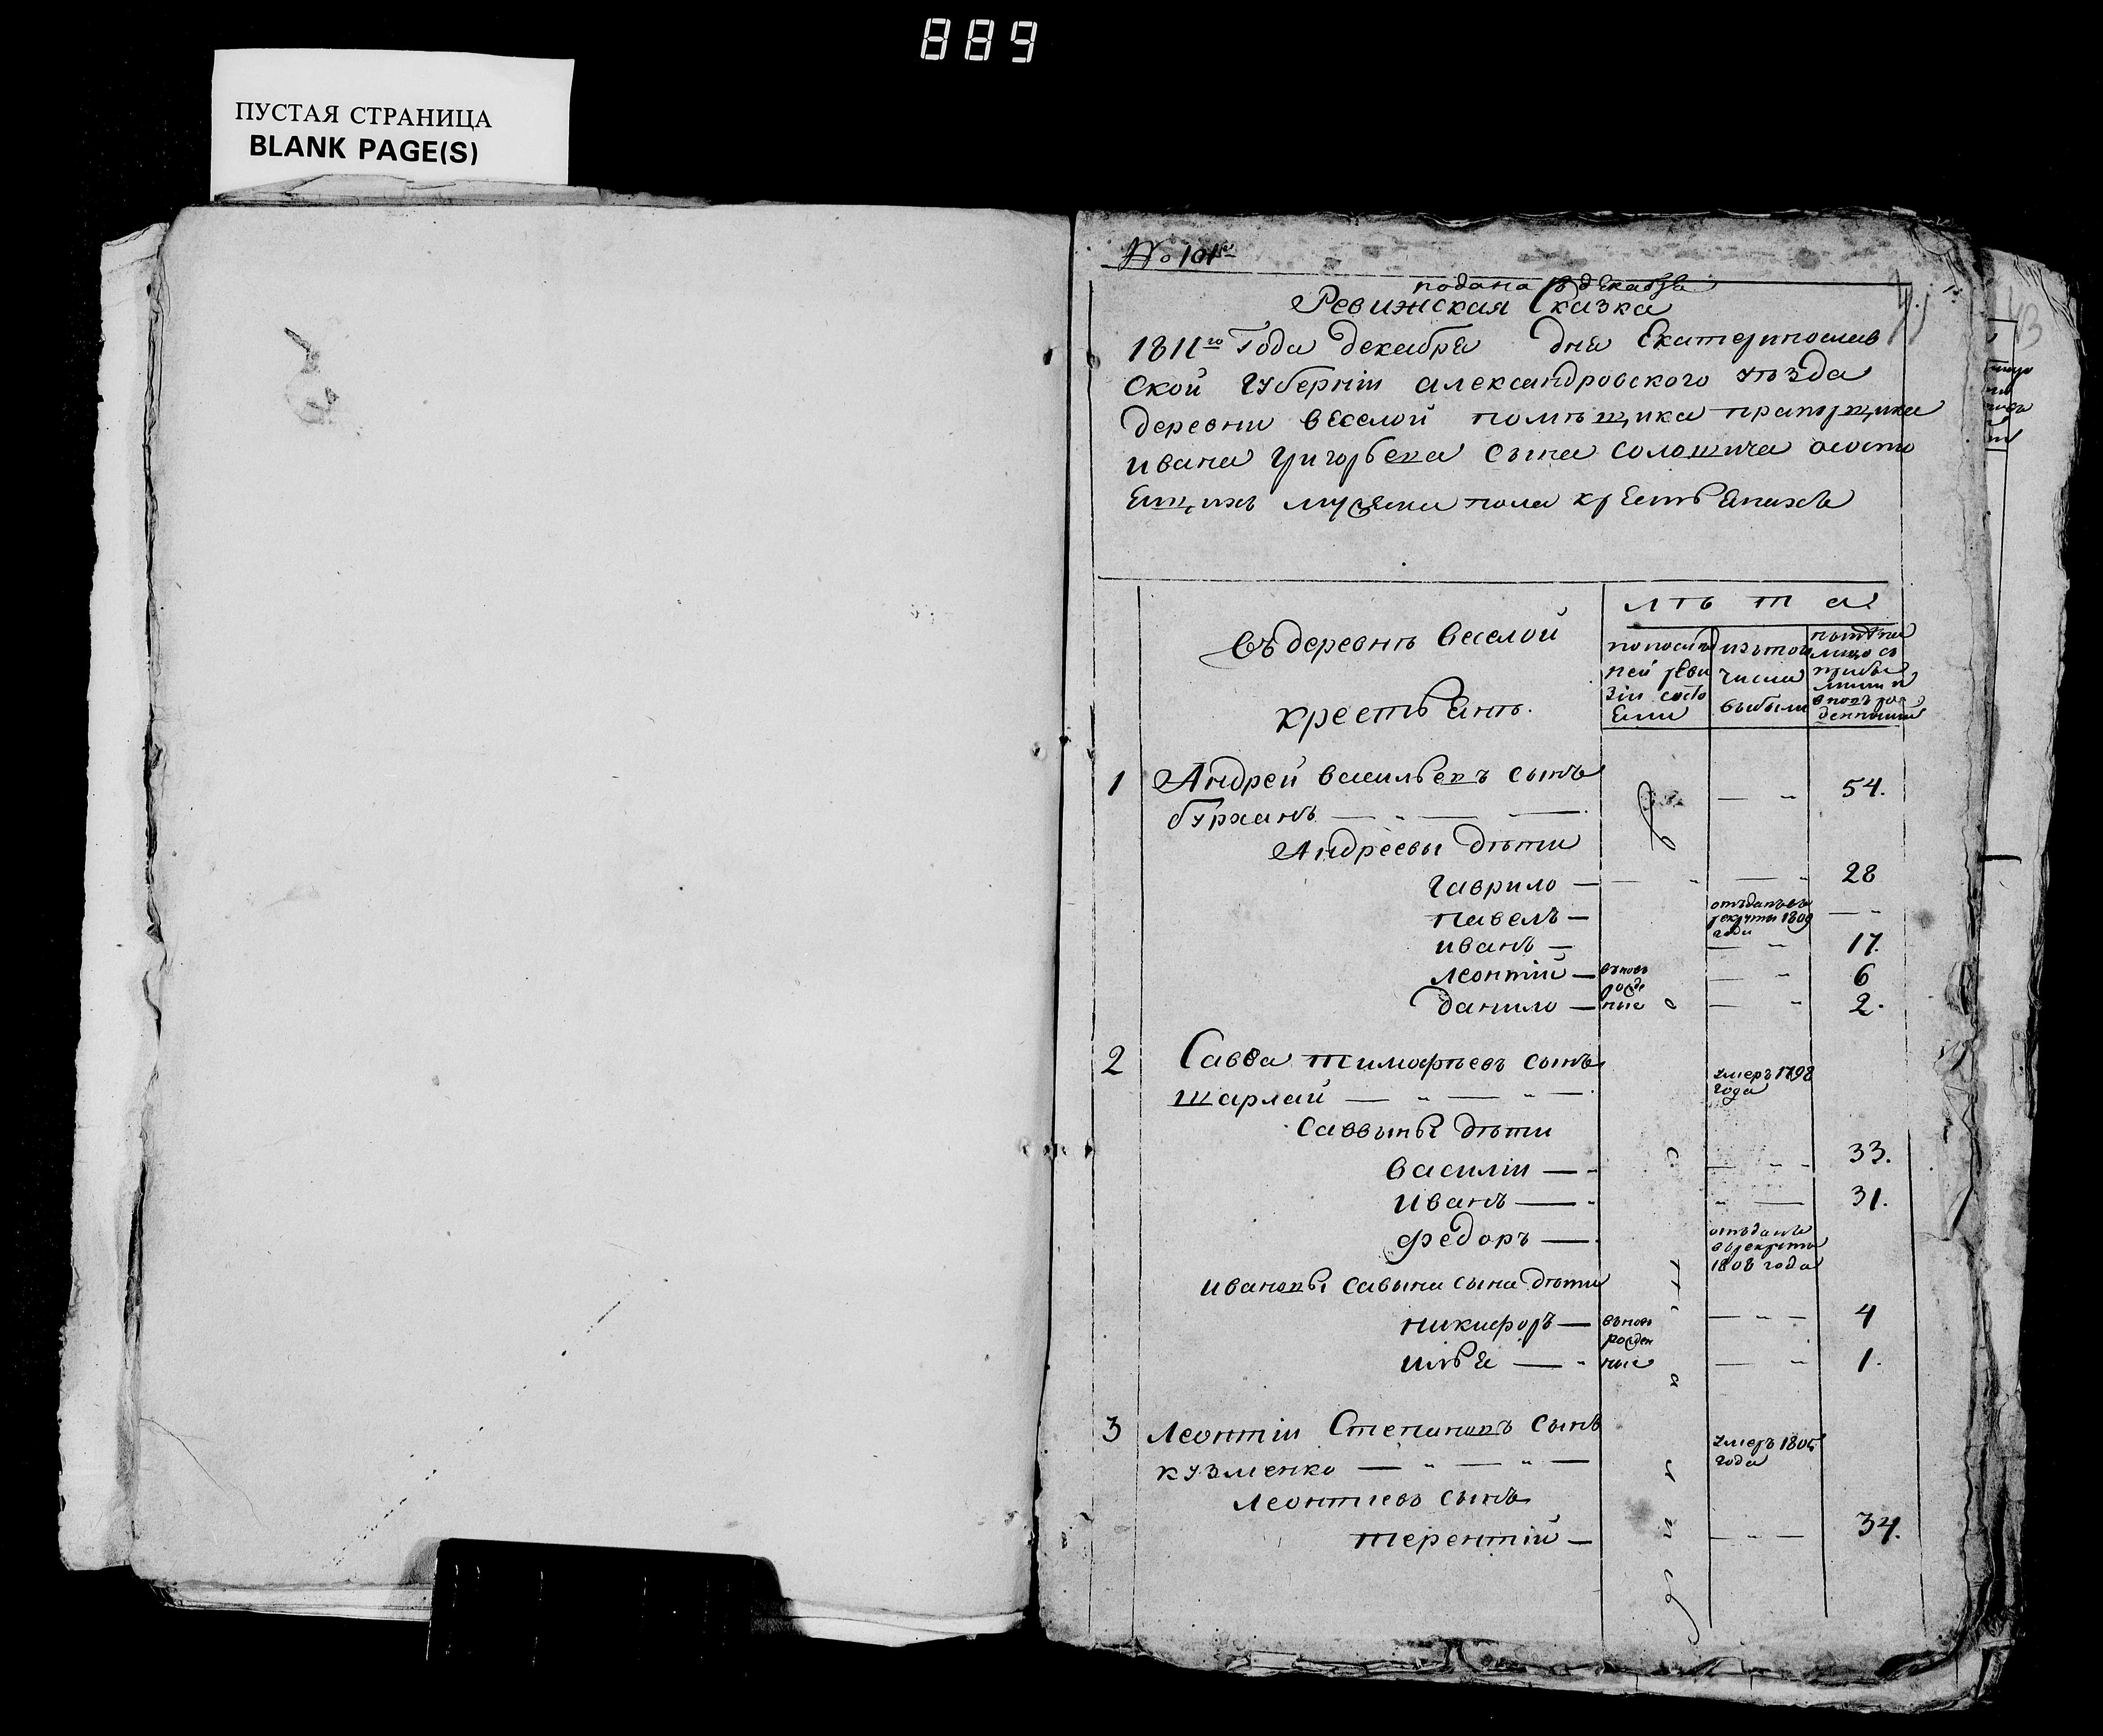 889
ПУСТАЯ СТРАНИЦА
BLANK PAGE(S)
№ 101
подана 18 декабря
Ревижская Сказка
1811го Года декабря дня Екатеринослав
ской губерніи александровского уѣзда
деревни веселой помѣщика прапорщика
ивана григорьева сына солошича ососто
ящихъ мужеска пола крестьянахъ
лѣта
въ деревнѣ веселой
крестьянъ.
по послѣд
ней реви
зіи состо
яли
изътого
числа
выбыли
1 Андрей васильевъ сынъ
бурханъ — — 54.
Андреевы дѣти
гаврило — — — 28
павелъ — отъданъ въ рекруты 1809 года —
иванъ — — 17.
леонтій — въновь — 6
данило — рожде ные — 2.
2 Савва тимофѣевъ сынъ
шарлай — — — умеръ 1798 года
саввины дѣти
василіи — — 33.
иванъ — — 31.
федоръ — отъданъ въ рекруты 1808 года
ивановы савина сына дѣти
никифоръ — въновь — 4
илья — рожден ные — 1.
3 Леонтіи Степановъ сынъ
кузменко — — — умеръ 1805 года
леонтиевъ сынъ
терентій — — 34.
43